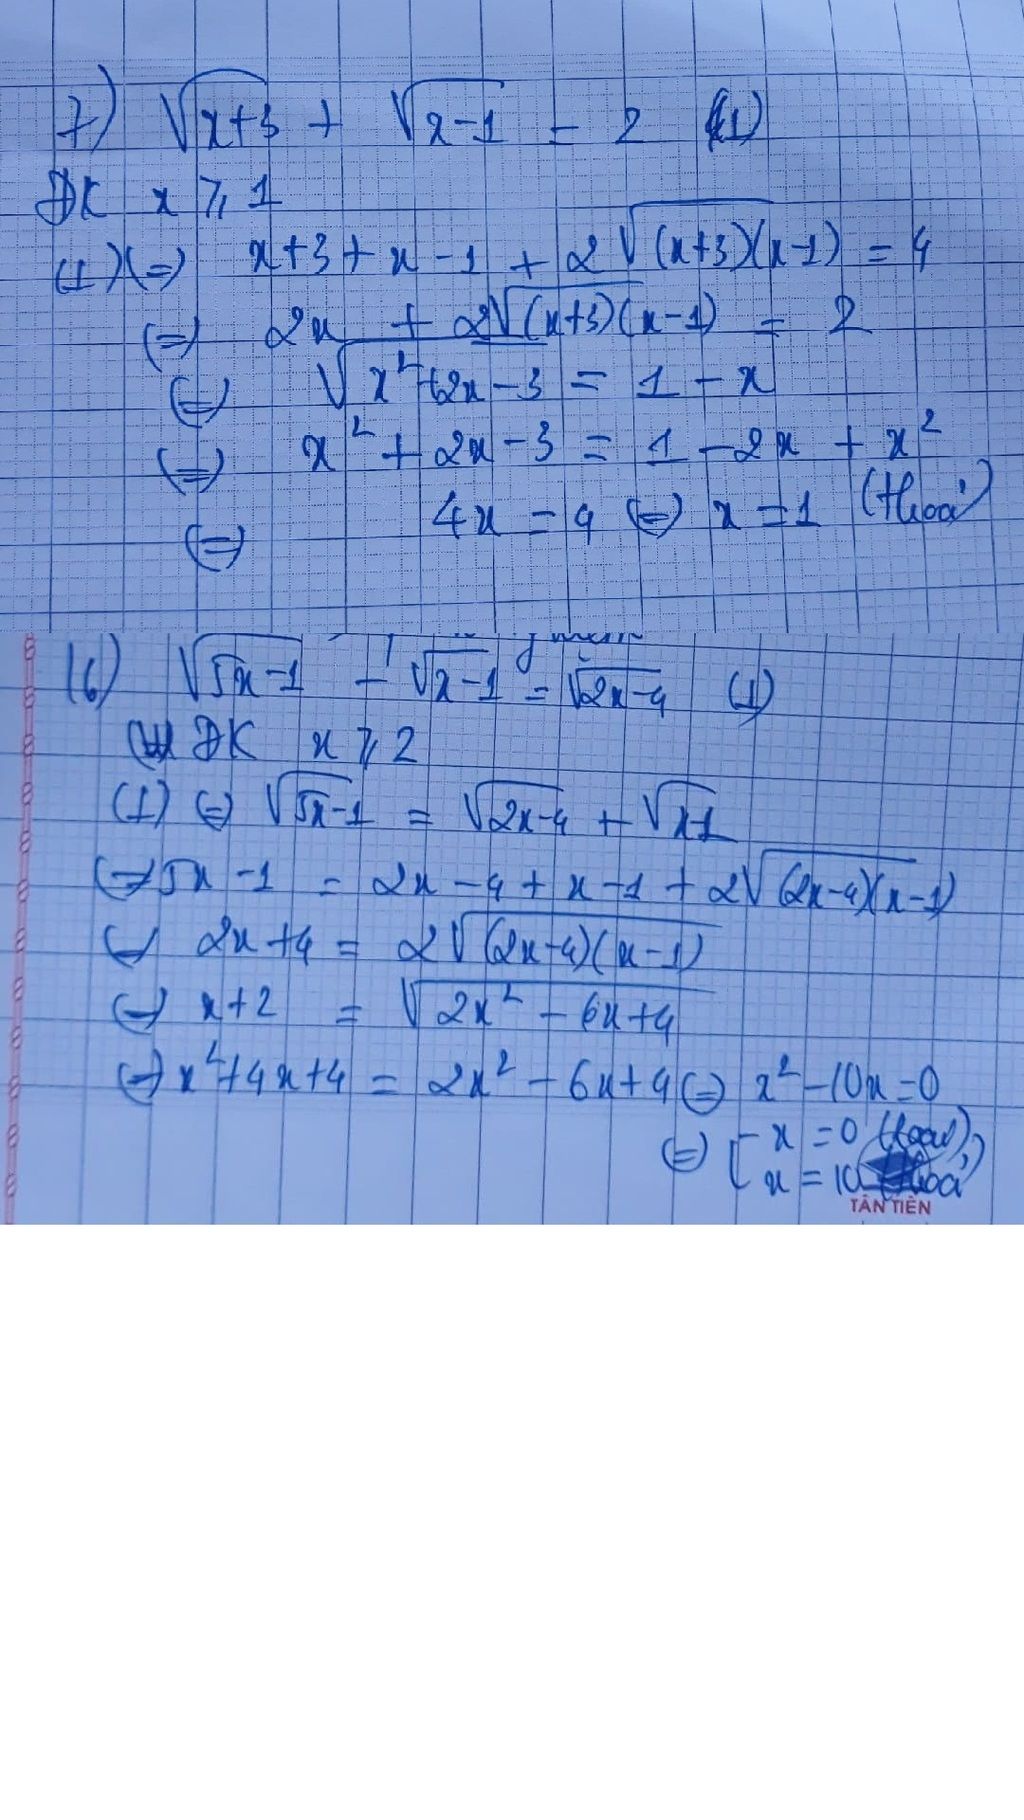 7) √(x+3) + √(x-1) = 2 (1)
ĐK x ⩾ 1
(1) (=) x+3+x-1 + 2√((x+3)(x-1)) = 4
(=) 2x + 2√((x+3)(x-1)) = 2
(=) √(x²+2x-3) = 1-x
(=) x²+2x-3 = 1-2x+x²
(=) 4x = 4 (=) x = 1 (thoả)
16) √(5x-1) - √(x-1) = √(2x-4) (1)
ĐK x ⩾ 2
(1) (=) √(5x-1) = √(2x-4) + √(x-1)
(=) 5x-1 = 2x-4+x-1+2√((2x-4)(x-1))
(=) 2x+4 = 2√((2x-4)(x-1))
(=) x+2 = √(2x²-6x+4)
(=) x²+4x+4 = 2x²-6x+4 (=) x²-10x=0
(=) [ x = 0 (loại)
x = 10 (thoả)
TÂN TIẾN